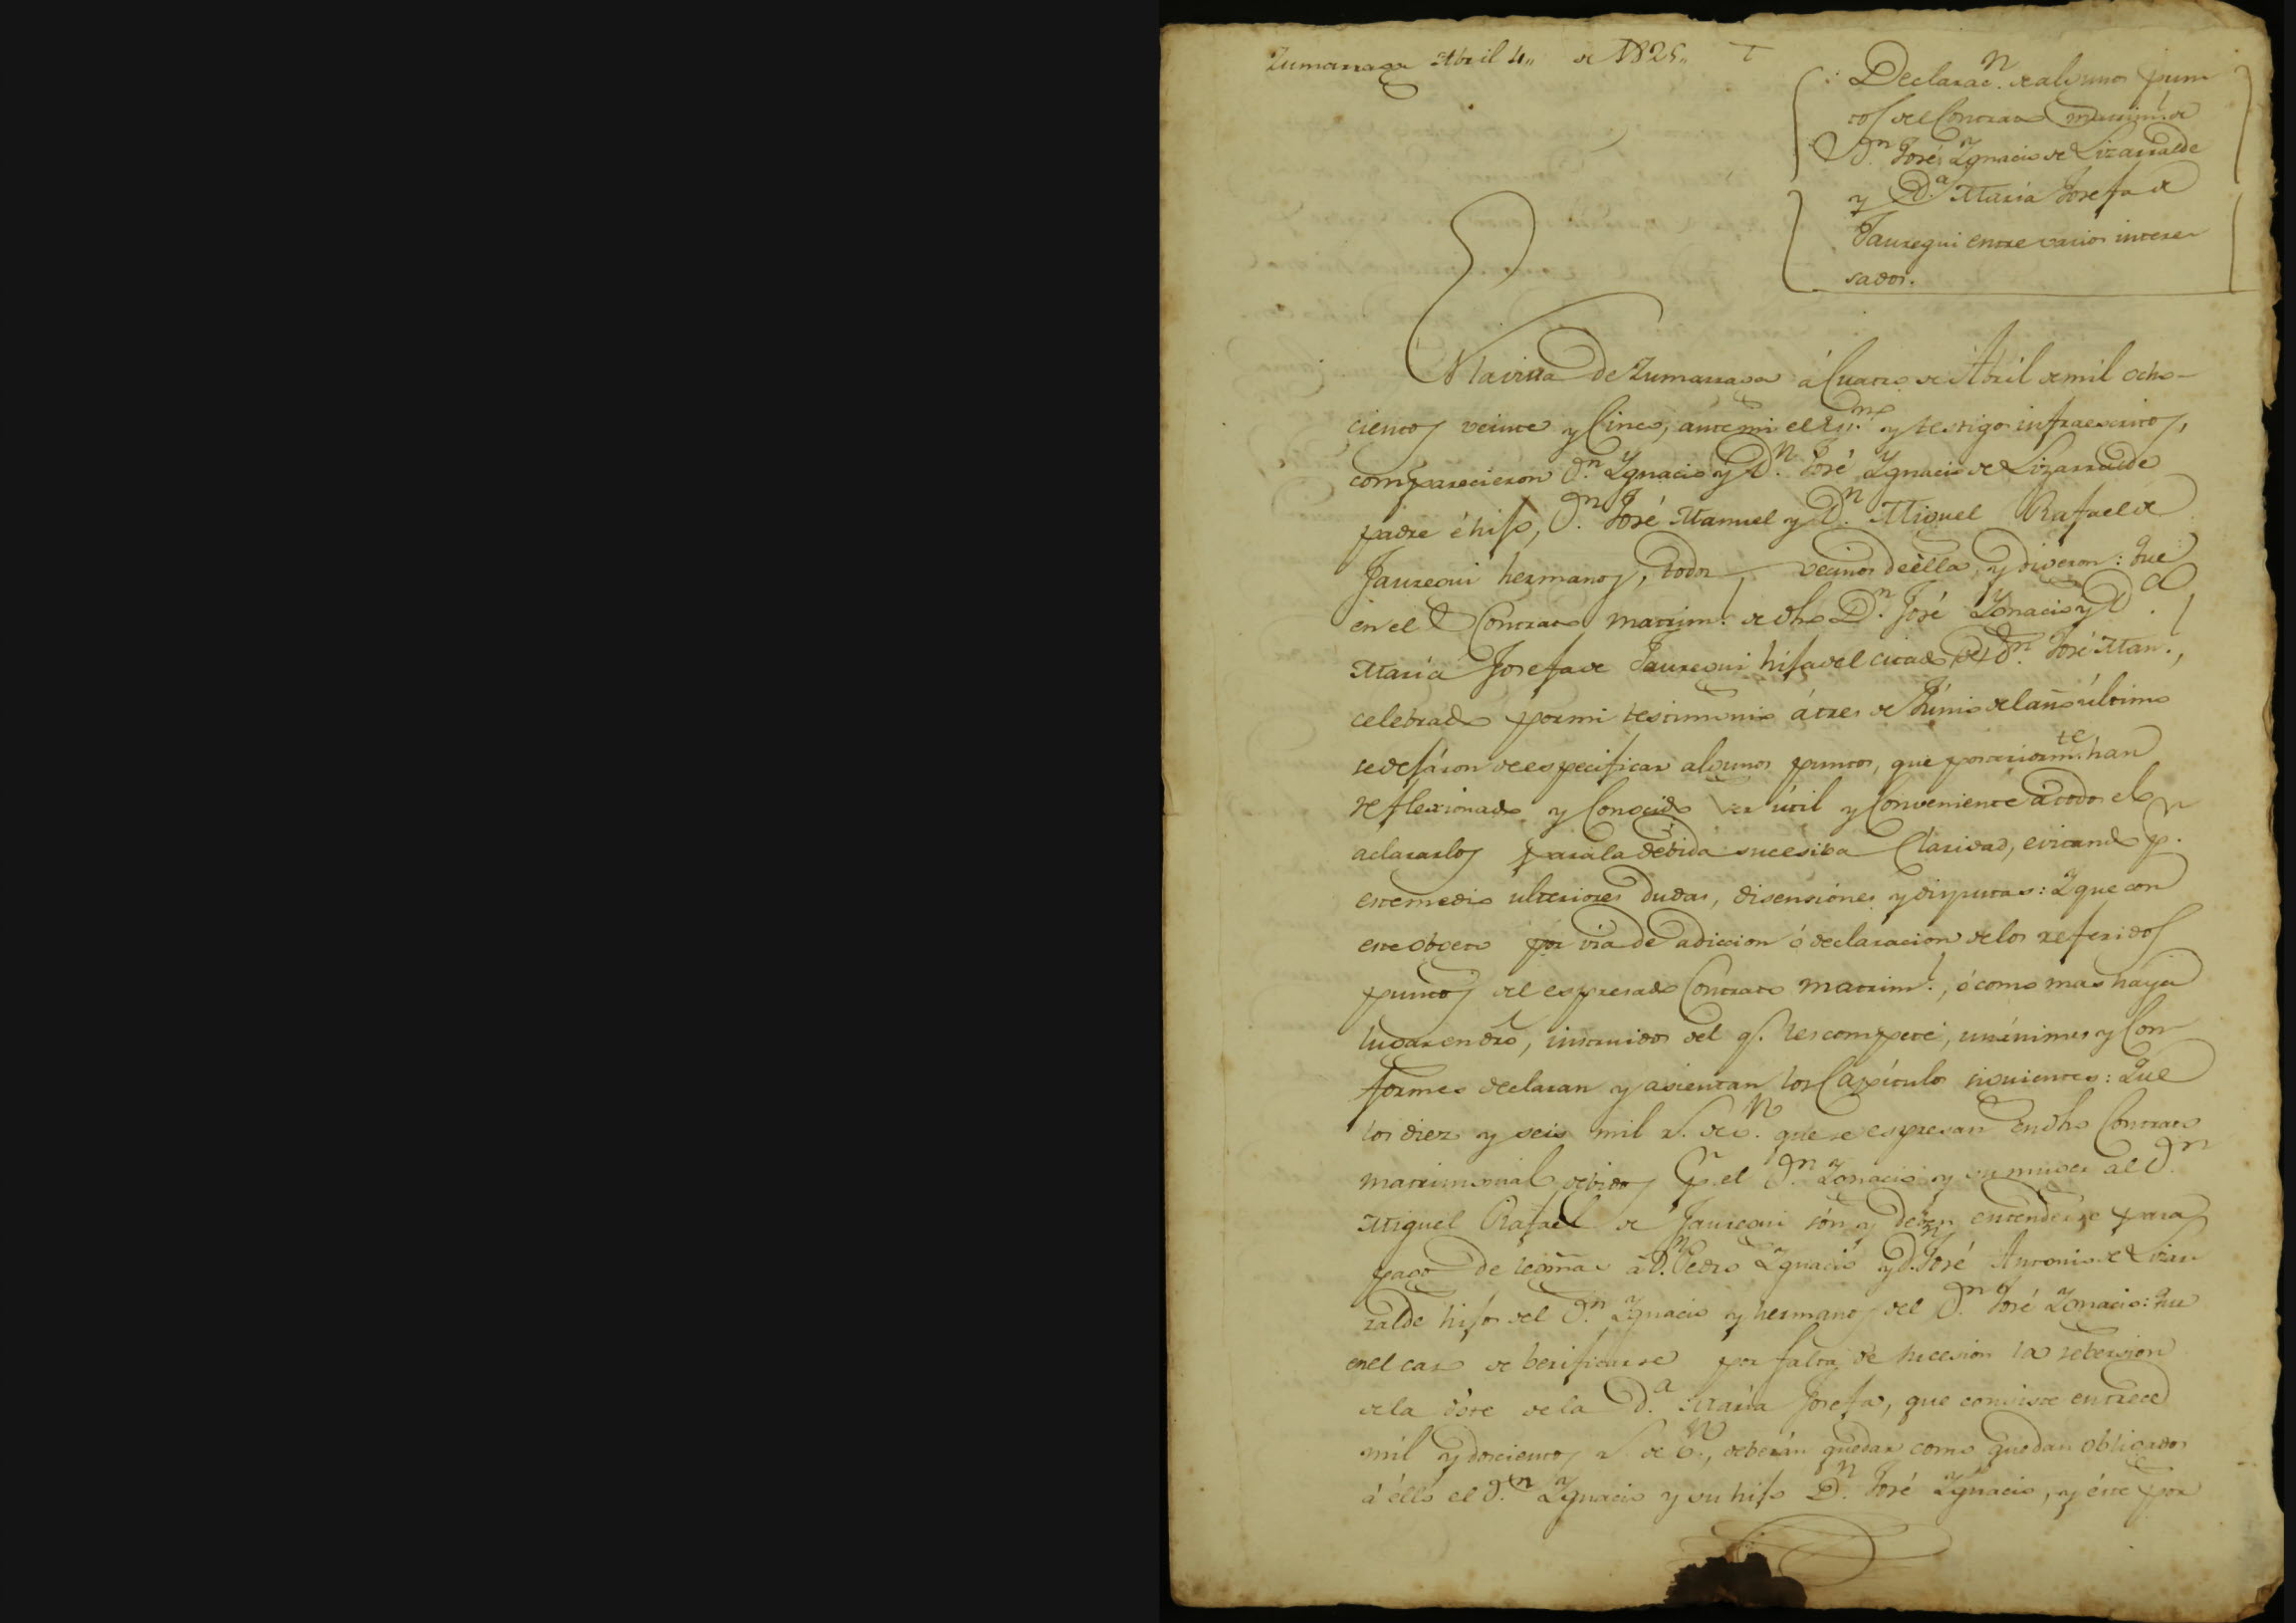 Zumarraga Abril 4,, de 1825,,
Declarac.n de algunos pun
tos del Contrato matrim.l de
D.n José Ygnacio de Lizarralde
y D.a María Josefa de
Jauregui entre varios intere
sados.
En la villa de Zumarraga á Cuatro de Abril de mil ocho-
cientos veinte y Cinco, ante mi el Es.no y testigos infraescritos,
comparecieron D.n Ygnacio y D.n José Ygnacio de Lizarralde
padre é hijo, D.n José Manuel y D.n Miguel Rafael de
Jauregui hermanos, todos vecinos de ella, y dijeron: Que
en el Contrato matrim.l de dho D.n José Ygnacio y D.a
María Josefa de Jauregui hija del citado D.n José Man.l,
celebrado por mi testimonio á tres de Júnio del año último
se dejáron de especificar algunos puntos, que posteriorm.te han
reflexionado y Conocido ser útil y Conveniente á todos el
aclararlos para la debida sucesiva Claridad, evitando p.r
este medio ulteriores dudas, disensiónes y disputas: Y que con
este objeto por via de adiccion ó declaracion de los referidos
puntos del espresado Contrato matrim.l, ó como mas haya
lugar en dro, instruidos del q.e les compete, unánimes y Con-
formes declaran y asientan los Capítulos siguientes: Que
los diez y seis mil r.s de v.n que se espresan en dho Contrato
matrimonial debidos p.r el D.n Ygnacio y su muger al D.n
Miguel Rafael de Jauregui són y deben entenderse para
pago de legítimas á D.n Pedro Ygnacio y D.n José Antonio de Lizar
ralde hijos del D.n Ygnacio y hermanos del D.n José Ygnacio: Que
en el caso de berificarse por falta de sucesion la rebersion
de la dóte de la D.a María Josefa, que consiste en trece
mil y doscientos r.s de v.n, deberán quedar como quedan obligados
á éllo el D.n Ygnacio y su hijo D.n José Ygnacio, y éste por